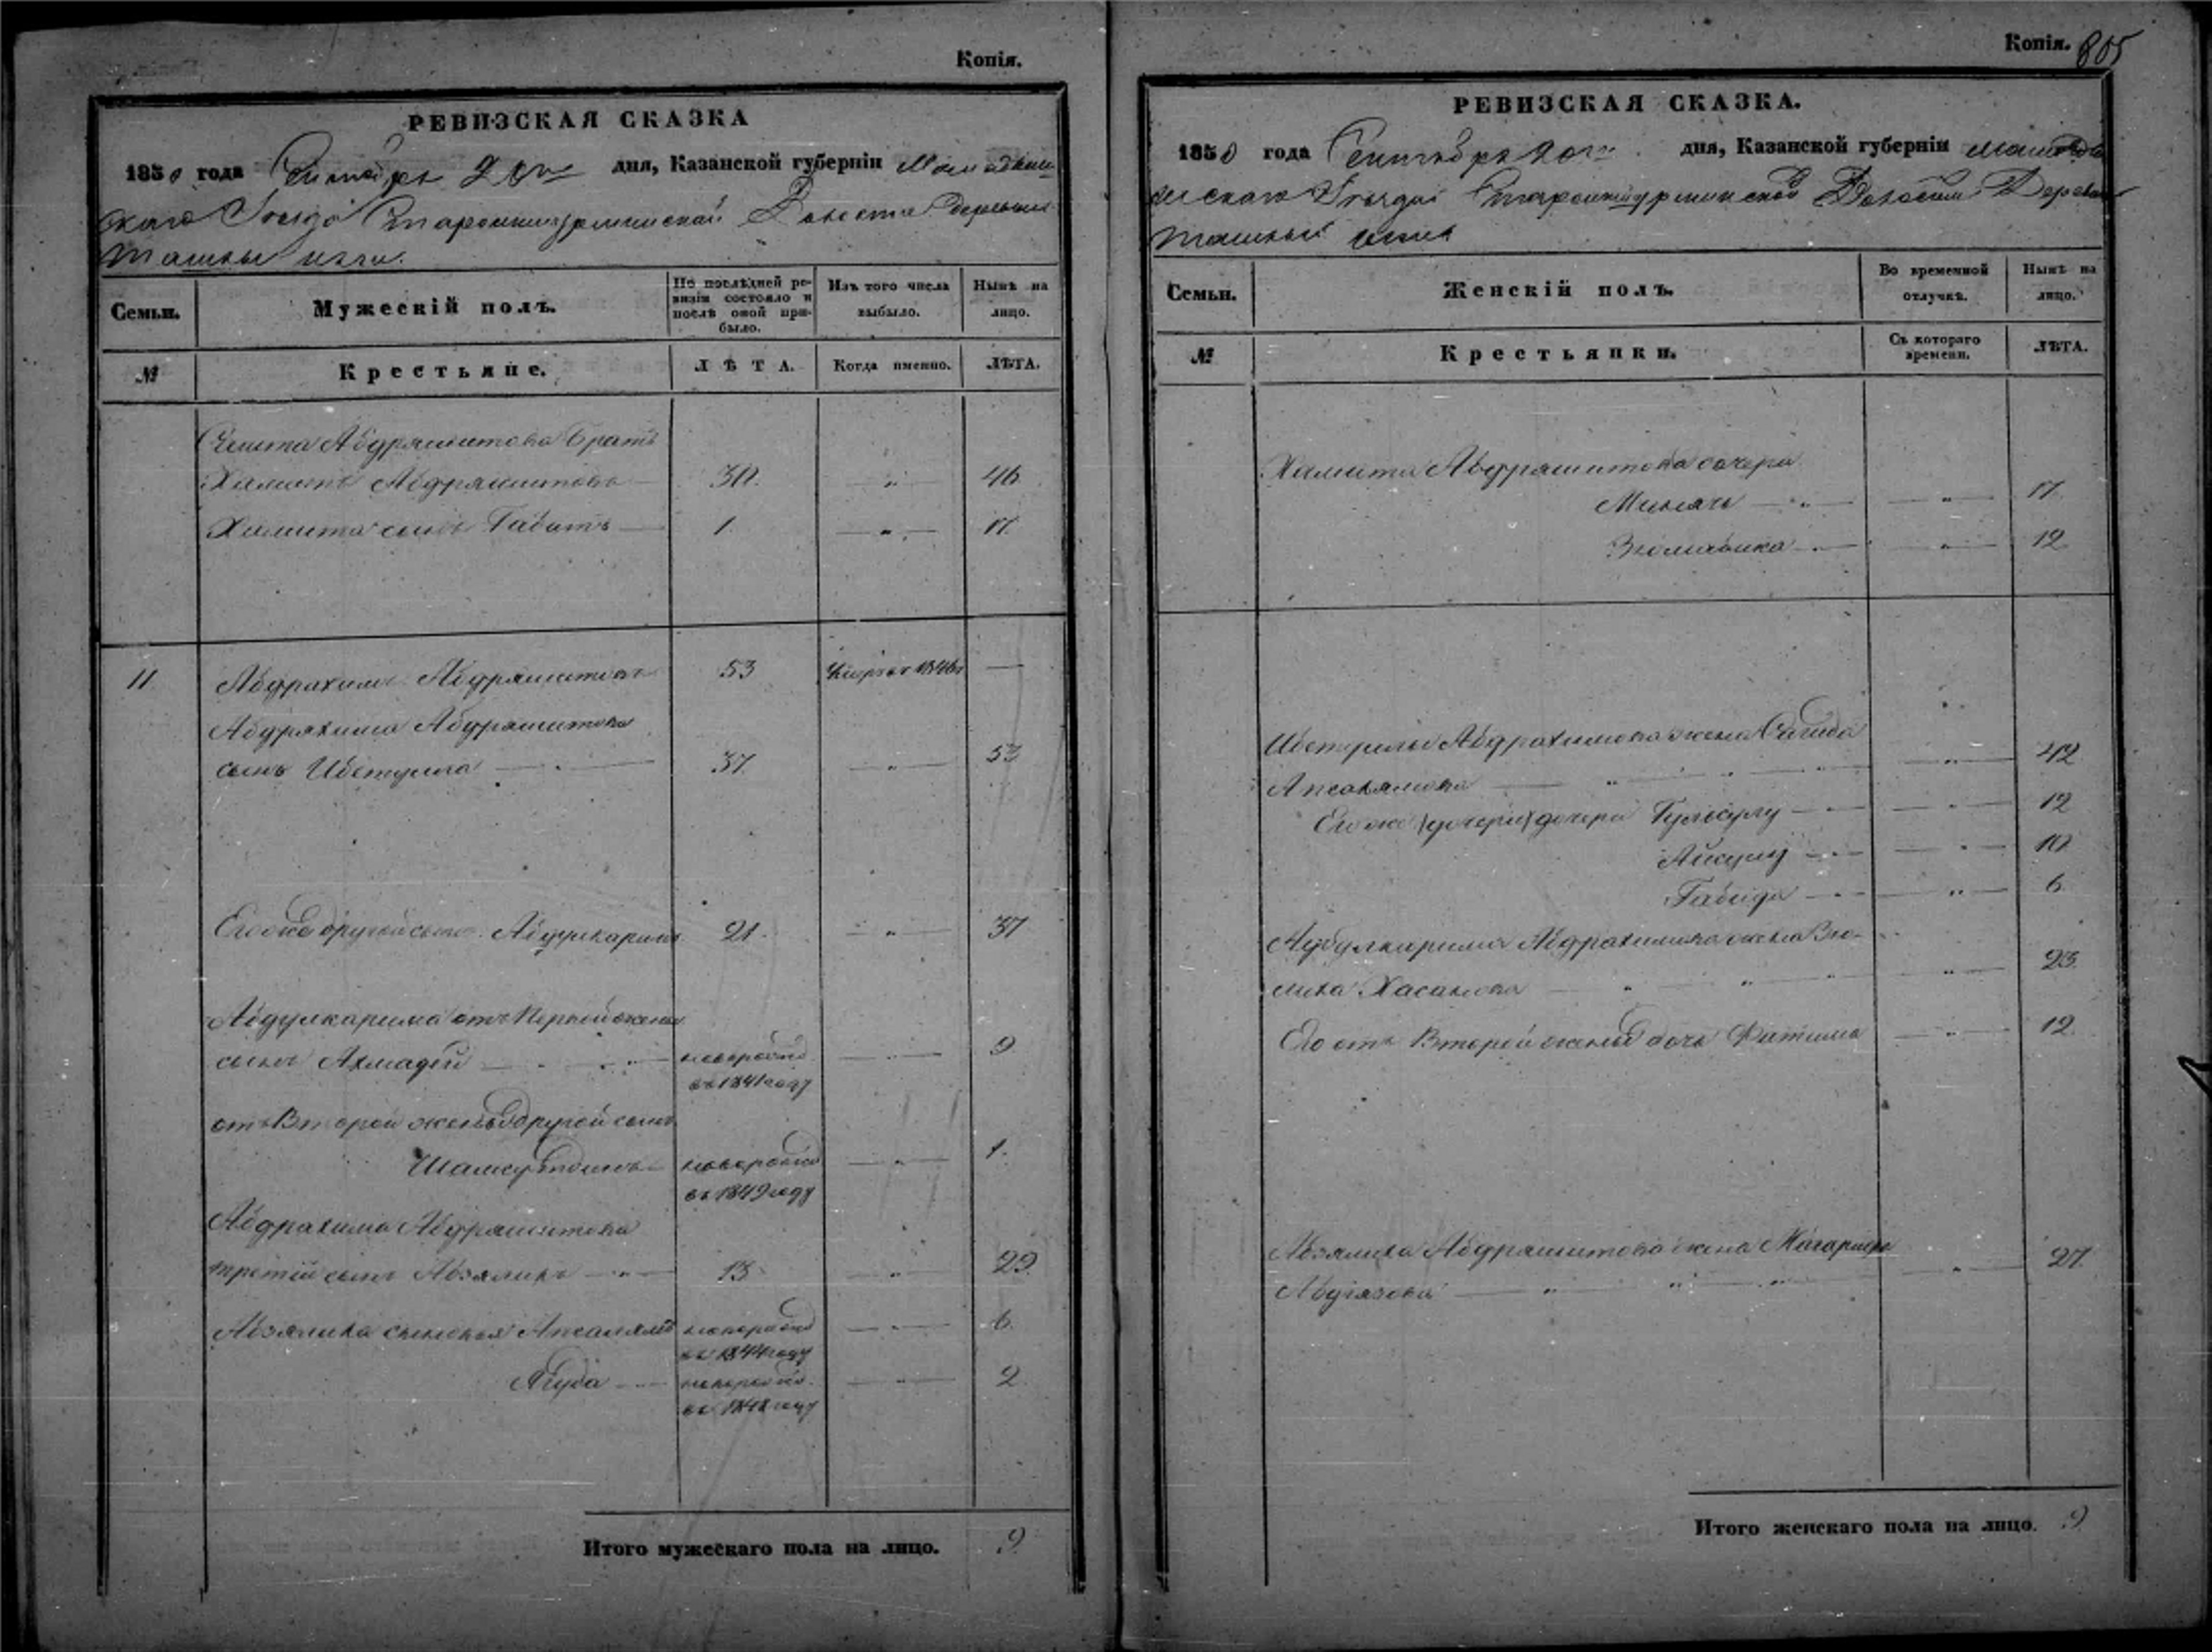 Копія.
РЕВИЗСКАЯ СКАЗКА
1850 года Сентября 20го дня, Казанской губерніи Мамадыш
скаго Уезда Волости деревни
Ташлы
Семьи.
Мужескій полъ.
По послѣдней ре-
визіи состояло и
послѣ оной при-
было.
Изъ того числа
выбыло.
Нынѣ на
лицо.
№
Крестьяне.
ЛѢТА.
Когда именно.
ЛѢТА.
Абдряшитова братъ
Хамитъ Абдряшитовъ 30. „ 46.
Хамита сынъ Габитъ 1. „ 17.
11. Абдрахимъ Абдряшитовъ 53 умре въ 1846г —
Абдряхима Абдряшитова
сынъ Ибетулла 37. „ 53
Его же другой сынъ Абдулкаримъ 21. „ 37
Абдулкарима отъ Первой жены
сынъ Ахмадей новорожд. „ 9.
въ 1841 году
отъ Второй жены другой сынъ
Шамсутдинъ новорожд „ 1.
въ 1849 году
Абдрахима Абдряшитова
третій сынъ Абзялилъ 13. „ 29.
Абзялила сыновья Апсалямъ новорожд „ 6.
въ 1844 году
Ягуда новорожд. „ 2
въ 1848 году
Итого мужескаго пола на лицо. 9.
Копія. 805
РЕВИЗСКАЯ СКАЗКА.
1850 года Сентября 20го дня, Казанской губерніи Мамады
шскаго Уезда Волости Деревни
Ташлы
Семьи.
Женскій полъ.
Во временной
отлучкѣ.
Нынѣ на
лицо.
№
Крестьянки.
Съ котораго
времени.
ЛѢТА.
Хамита Абдряшитова дочери
„ 17.
„ 12
Ибетуллы Абдрахимова жена Сагида
Апсалямова „ 42
Его же (дочери) дочери Гульсулу „ 12
Айсулу „ 10
Габида „ 6
Абдулкарима Абдрахимова жена Зю-
лиха Хасанова „ 23.
Его отъ Второй жены дочь Фатима „ 12.
Абзялила Абдряшитова жена
„ 27.
Итого женскаго пола на лицо. 9